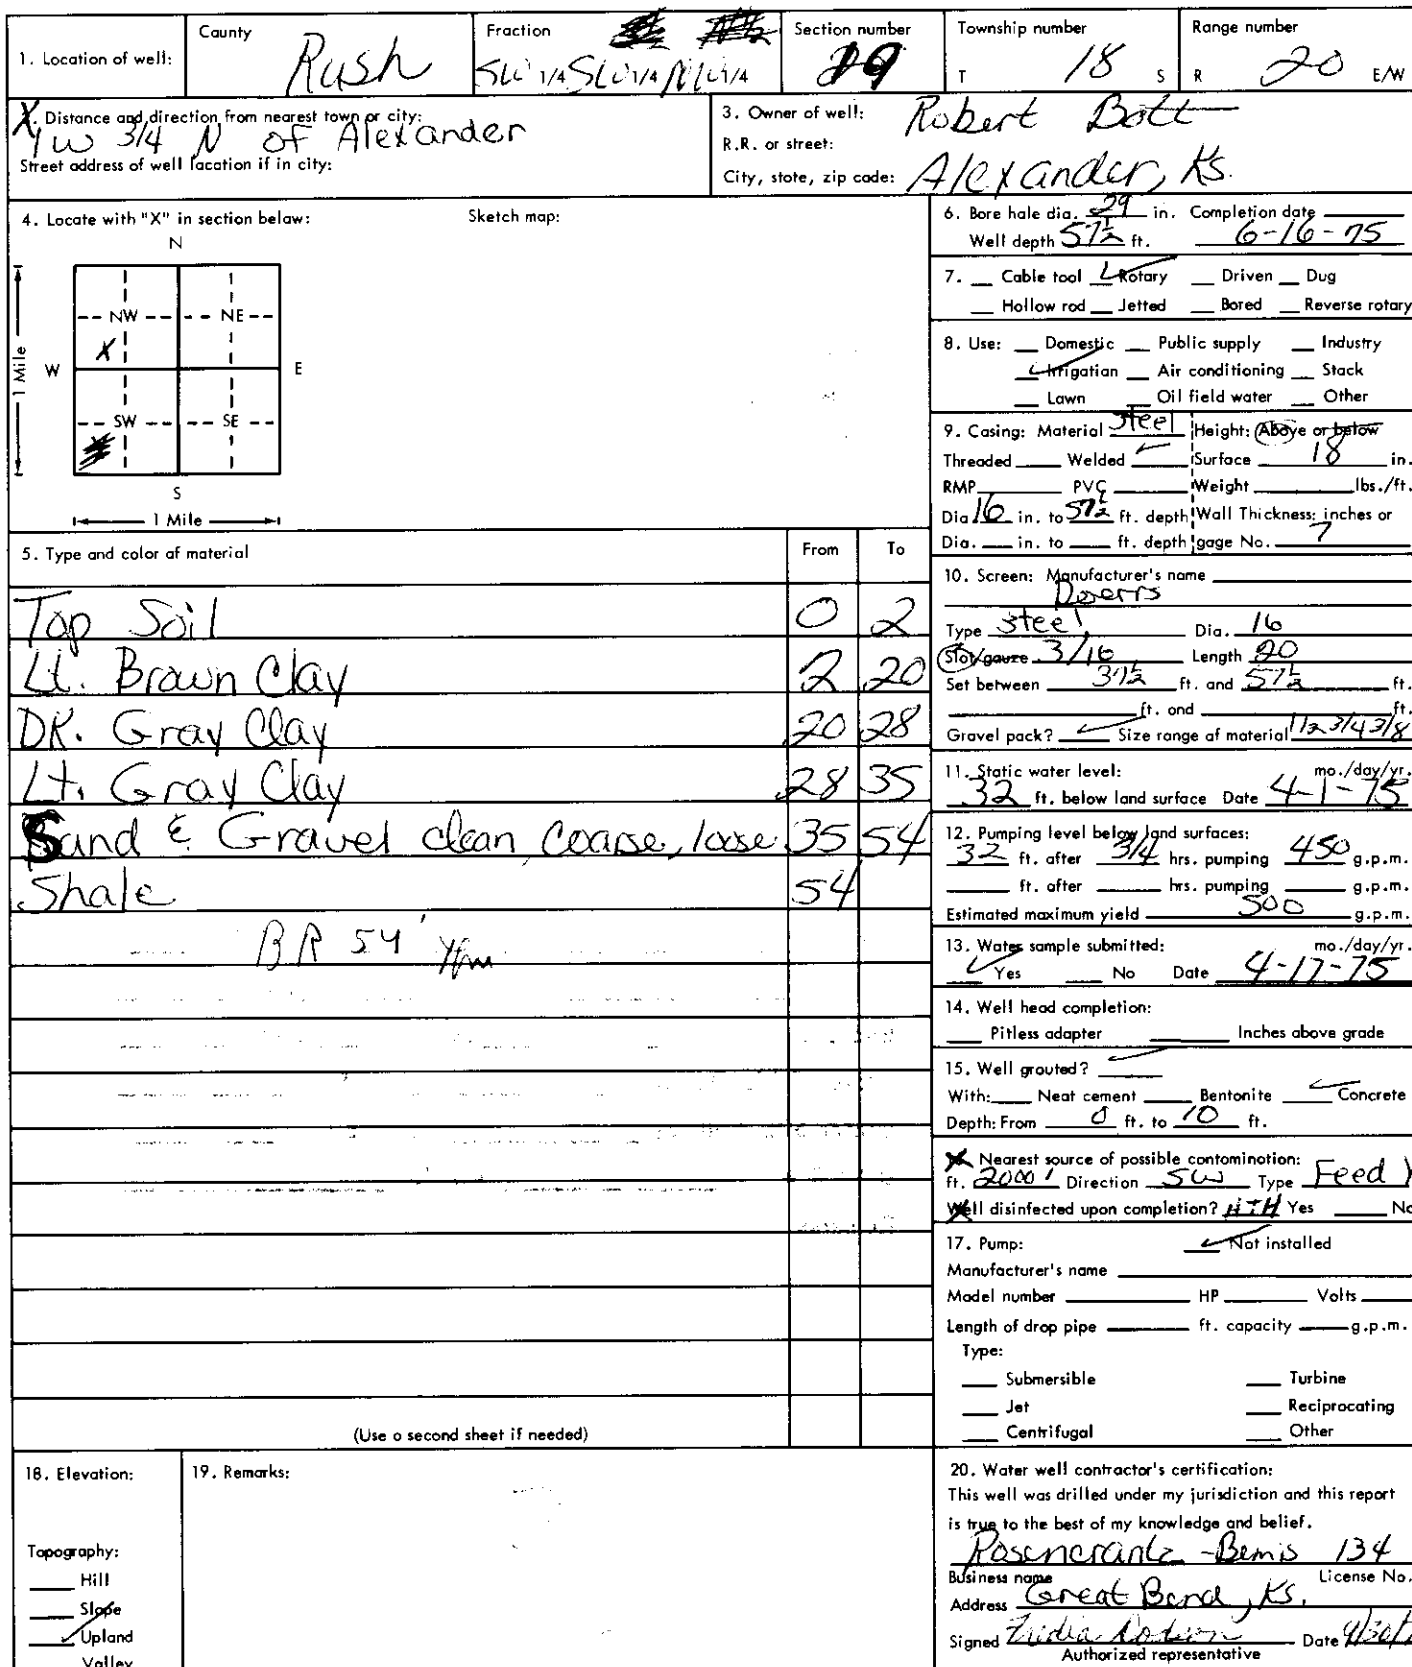 1. Location of well: County Rush Fraction SW 1/4 SW 1/4 NW 1/4 Section number 29 Township number T 18 S Range number R 20 E/W
2. Distance and direction from nearest town or city:
1 W 3/4 N of Alexander
Street address of well location if in city:
3. Owner of well: Robert Bott
R.R. or street:
City, state, zip code: Alexander, Ks.
4. Locate with "X" in section below: Sketch map:
N
NW NE
X
1 Mile W E
SW SE
S
1 Mile
5. Type and color of material From To
Top Soil 0 2
Lt. Brown Clay 2 20
DK. Gray Clay 20 28
Lt. Gray Clay 28 35
Sand & Gravel clean coarse, loose 35 54
Shale 54
BR 54'
(Use a second sheet if needed)
6. Bore hole dia. 29 in. Completion date
Well depth 57 1/2 ft. 6-16-75
7. Cable tool ✓ Rotary Driven Dug
Hollow rod Jetted Bored Reverse rotary
8. Use: Domestic Public supply Industry
✓ Irrigation Air conditioning Stock
Lawn Oil field water Other
9. Casing: Material Steel Height: Above or below
Threaded Welded ✓ Surface 18 in.
RMP PVC Weight lbs./ft.
Dia. 16 in. to 57 1/2 ft. depth Wall Thickness: inches or
Dia. in. to ft. depth gage No. 7
10. Screen: Manufacturer's name
Doerrs
Type Steel Dia. 16
Slot/gauze 3/16 Length 20
Set between 37 1/2 ft. and 57 1/2 ft.
ft. and ft.
Gravel pack? ✓ Size range of material 1/2 3/4 3/8
11. Static water level: mo./day/yr.
32 ft. below land surface Date 4-1-75
12. Pumping level below land surfaces:
32 ft. after 3/4 hrs. pumping 450 g.p.m.
ft. after hrs. pumping g.p.m.
Estimated maximum yield 500 g.p.m.
13. Water sample submitted: mo./day/yr.
✓ Yes No Date 4-17-75
14. Well head completion:
Pitless adapter Inches above grade
15. Well grouted? ✓
With: Neat cement Bentonite ✓ Concrete
Depth: From 0 ft. to 10 ft.
Nearest source of possible contamination:
ft. 2000' Direction SW Type Feed
Well disinfected upon completion? HTH Yes No
17. Pump: ✓ Not installed
Manufacturer's name
Model number HP Volts
Length of drop pipe ft. capacity g.p.m.
Type:
Submersible Turbine
Jet Reciprocating
Centrifugal Other
18. Elevation:
Topography:
Hill
Slope
✓ Upland
Valley
19. Remarks:
20. Water well contractor's certification:
This well was drilled under my jurisdiction and this report
is true to the best of my knowledge and belief.
Rosencrantz-Bemis 134
Business name License No.
Address Great Bend, Ks.
Signed Date 4/30/
Authorized representative